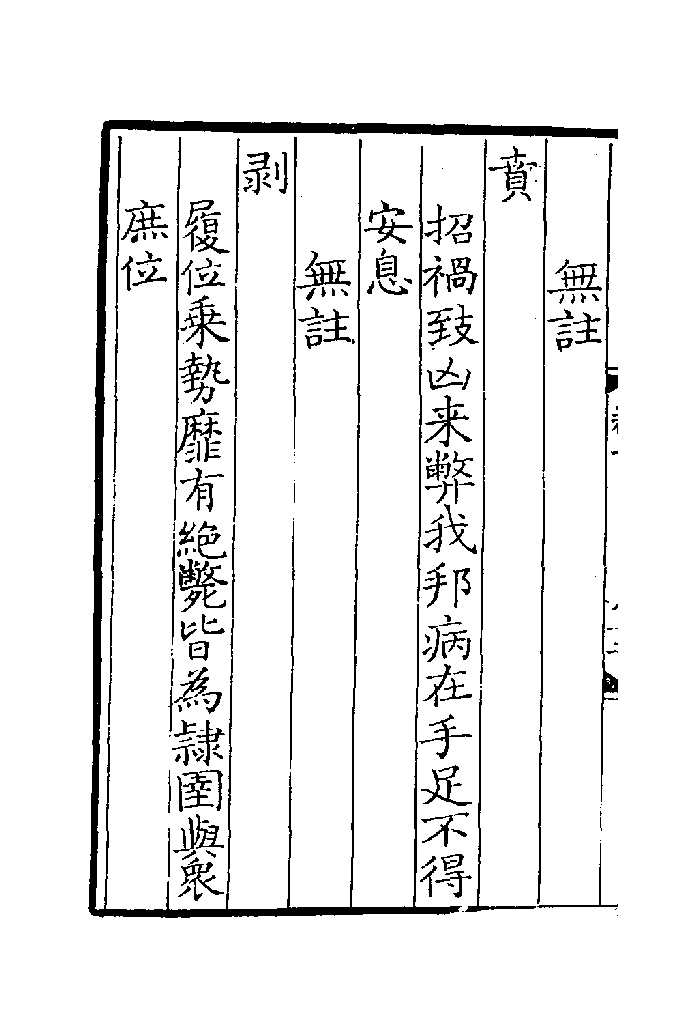 無註
賁
招禍致凶来弊我邦病在手足不得
安息
無註
剥
履位乗勢靡有絶斃皆為隷圉與衆
庶位